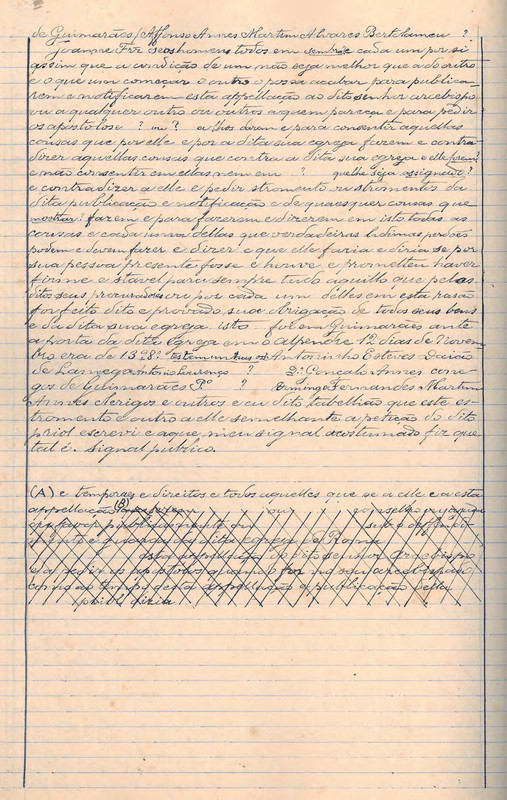 de Guimarães / Affonso Annes Martim Alvares Bertholameu ?
joanne Frz seos homens todos em sembra e cada um por si
assim que a condição de um não seja melhor que a do outro
e o que um começar o outro o possa acabar para publica-
rem e notificarem esta appellação ao dito senhor arcebispo
ou a qualquer outro ou outros a quem pareça e para pedir
os apostolos ? ou ? a lhos darem e para consentir aquellas
cousas que por elle e por a dita sua egreja fazem e contra-
dizer aquellas cousas que contra a dita sua egreja e elle forem?
e não consentir em ellas nem em ? que lhe seja assignado ?
e contradizer a elle e pedir stromento ou stromentos da
dita publicação e notificação e de quaesquer cousas que
mostrar? fazem e para fazerem e dizerem em isto todas as
cousas e cada uma dellas que verdadeiros lidimos procdes
podem e devem fazer e dizer e que elle faria e diria se por
sua pessoa presente fosse e houve e prometteu haver
firme e stavel para sempre tudo aquillo que pelos
ditos seus procuradores ou por cada um délles em esta rasão
for feito dito e provado sua obrigação de todos seus bens
e da dita sua egreja isto foi em Guimarães ante
a porta da dita Egreja em o Alpendre 1º dias de Novem-
bro era de 1328? testemunhas os Antoninho Esteves Daião
de Lamego Antonio Lourenço ? D. Gonçalo Annes cone-
gos de Guimarães Pº ? Domingos Fernandes Martim
Annes clerigos e outros e eu dito tabellião que este es-
tromento e outro a elle semelhante a petição do dito
priol escrevi e aque meu signal acostumado fiz que
tal é. signal publico.
(A) e temporaes e direitos e todos aquelles que se a elle e a esta
appellação (B) ou conselho ou ajuda
ou favor publicamente ou
e guarda da dita egreja de Roma
esta appellação do dito senhor arcebispo
e a pedir os apostolos
como no tempo esta appellação e publicação della
priol dizia